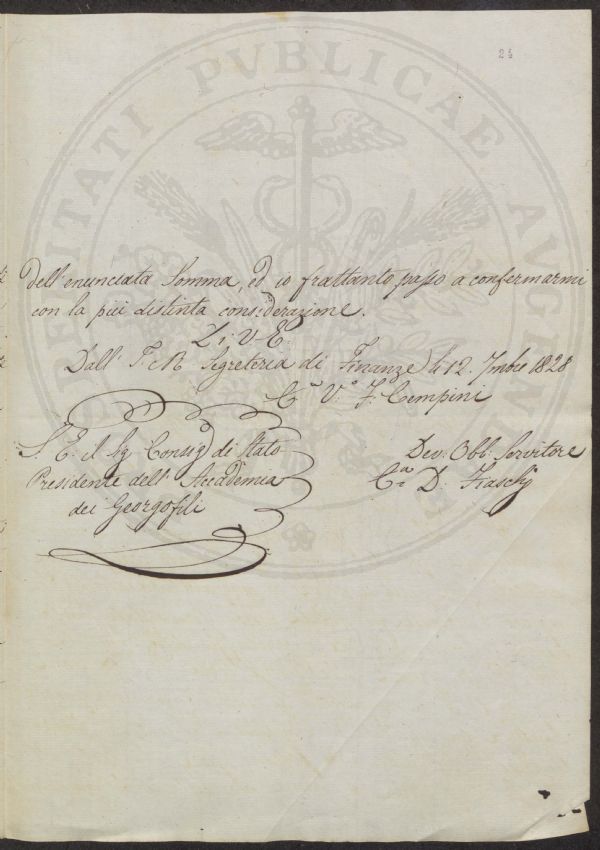 24
PROSPERITATI PVBLICAE AVGENDAE
dell'enunciata Somma, ed io frattanto passo a confermarmi
con la più distinta considerazione.
Di V. E.
Dall' I. e R. Segreteria di Finanze li 12. 7mbre 1828
C.° V.° F. Cempini
S. E. il Sig. Consig. di Stato
Presidente dell' Accademia
dei Georgofili
Dev. Obb. Servitore
D.